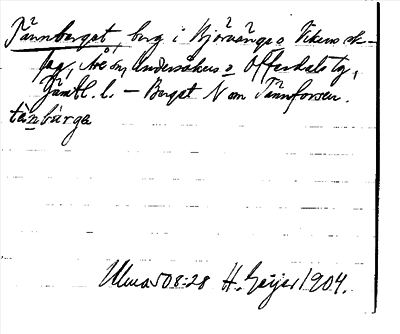 Tännberget, berg i Björänge o Vikens sk-
lag, Åre sn, Undersåkers o Offerdals tg,
Jämtl. l. — Berget N om Tännforsen.
tä̀nbärgə
Ulma 508:28 H. Geijer 1904.